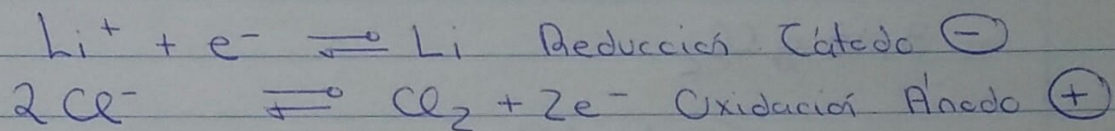 Li⁺ + e⁻ ⇌ Li Reducción Cátodo ⊖
2Cl⁻ ⇌ Cl₂ + 2e⁻ Oxidación Ánodo ⊕